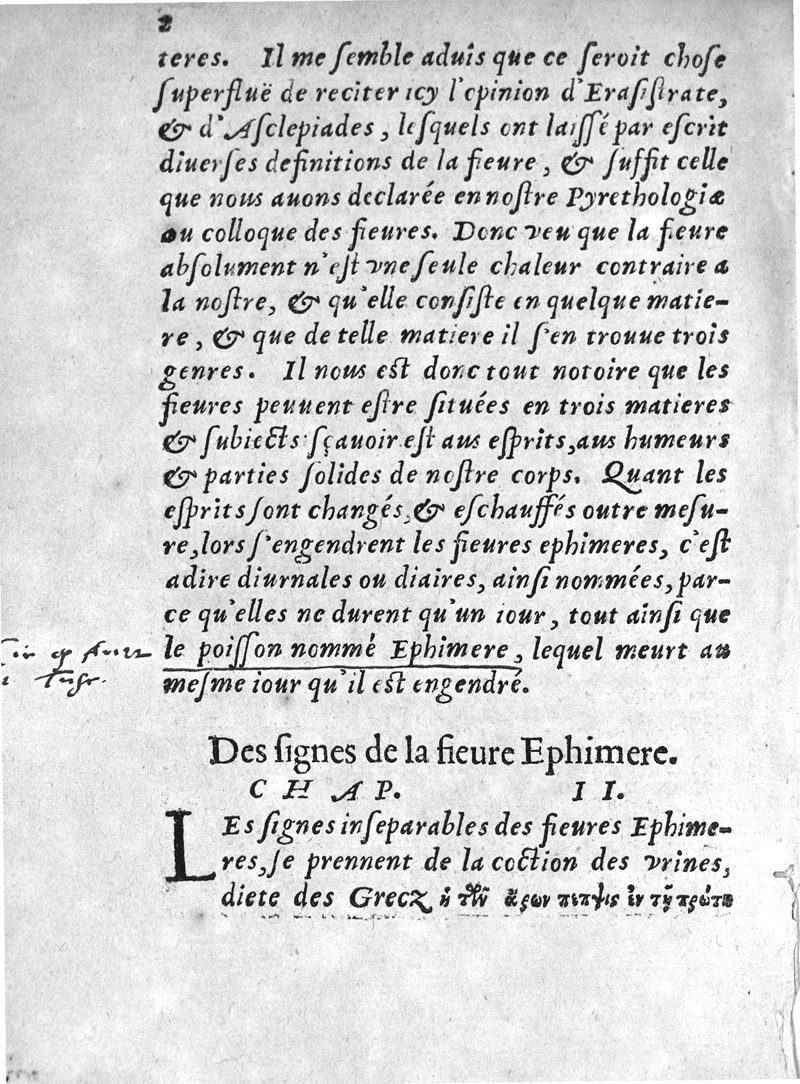 2
teres. Il me ſemble aduîs que ce ſeroit choſe
ſuperfluë de reciter icy l'opinion d'Eraſiſtrate,
& d'Aſclepiades, leſquels ont laiſſé par eſcrit
diuerſes definitions de la fieure, & ſuffit celle
que nous auons declarée en noſtre Pyrethologiæ
ou colloque des fieures. Donc veu que la fieure
abſolument n'eſt vne ſeule chaleur contraire a
la noſtre, & qu'elle conſiſte en quelque matie-
re, & que de telle matiere il ſ'en trouue trois
genres. Il nous eſt donc tout notoire que les
fieures peuuent eſtre ſituées en trois matieres
& ſubiects: sçauoir eſt aus eſprits, aus humeurs
& parties ſolides de noſtre corps. Quant les
eſprits ſont changés, & eſchauffés outre meſu-
re, lors ſ'engendrent les fieures ephimeres, c'eſt
adire diurnales ou diaires, ainſi nommées, par-
ce qu'elles ne durent qu'un iour, tout ainſi que
le poiſſon nommé Ephimere, lequel meurt au
meſme iour qu'il eſt engendré.
Des ſignes de la fieure Ephimere.
CHAP. II.
LEs ſignes inſeparables des fieures Ephime-
res, ſe prennent de la coction des vrines,
diete des Grecz ἡ τῶν ἄρων πεπψις ἐν τῇ πρώτῃ